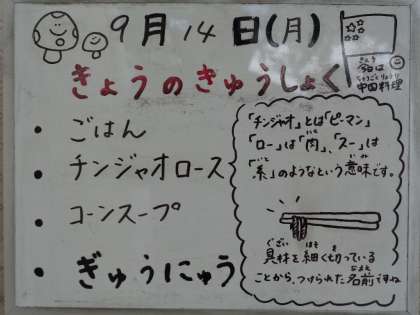 9月14日(月)
きょうのきゅうしょく
きょう
今日は
ちゅうごくりょうり
中国料理
・ごはん
・チンジャオロース
・コーンスープ
・ぎゅうにゅう
「チンジャオ」とは「ピーマン」
「ロー」は「肉」、「スー」は
「糸」のようなという意味です。
ぐざい ほそ き
具材を細く切っている
なまえ
ことから、つけられた名前ですね